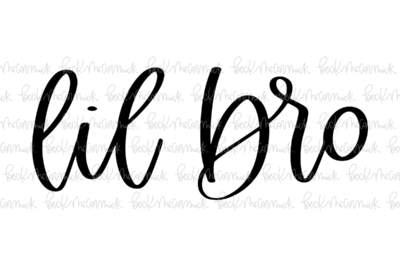 lil bro